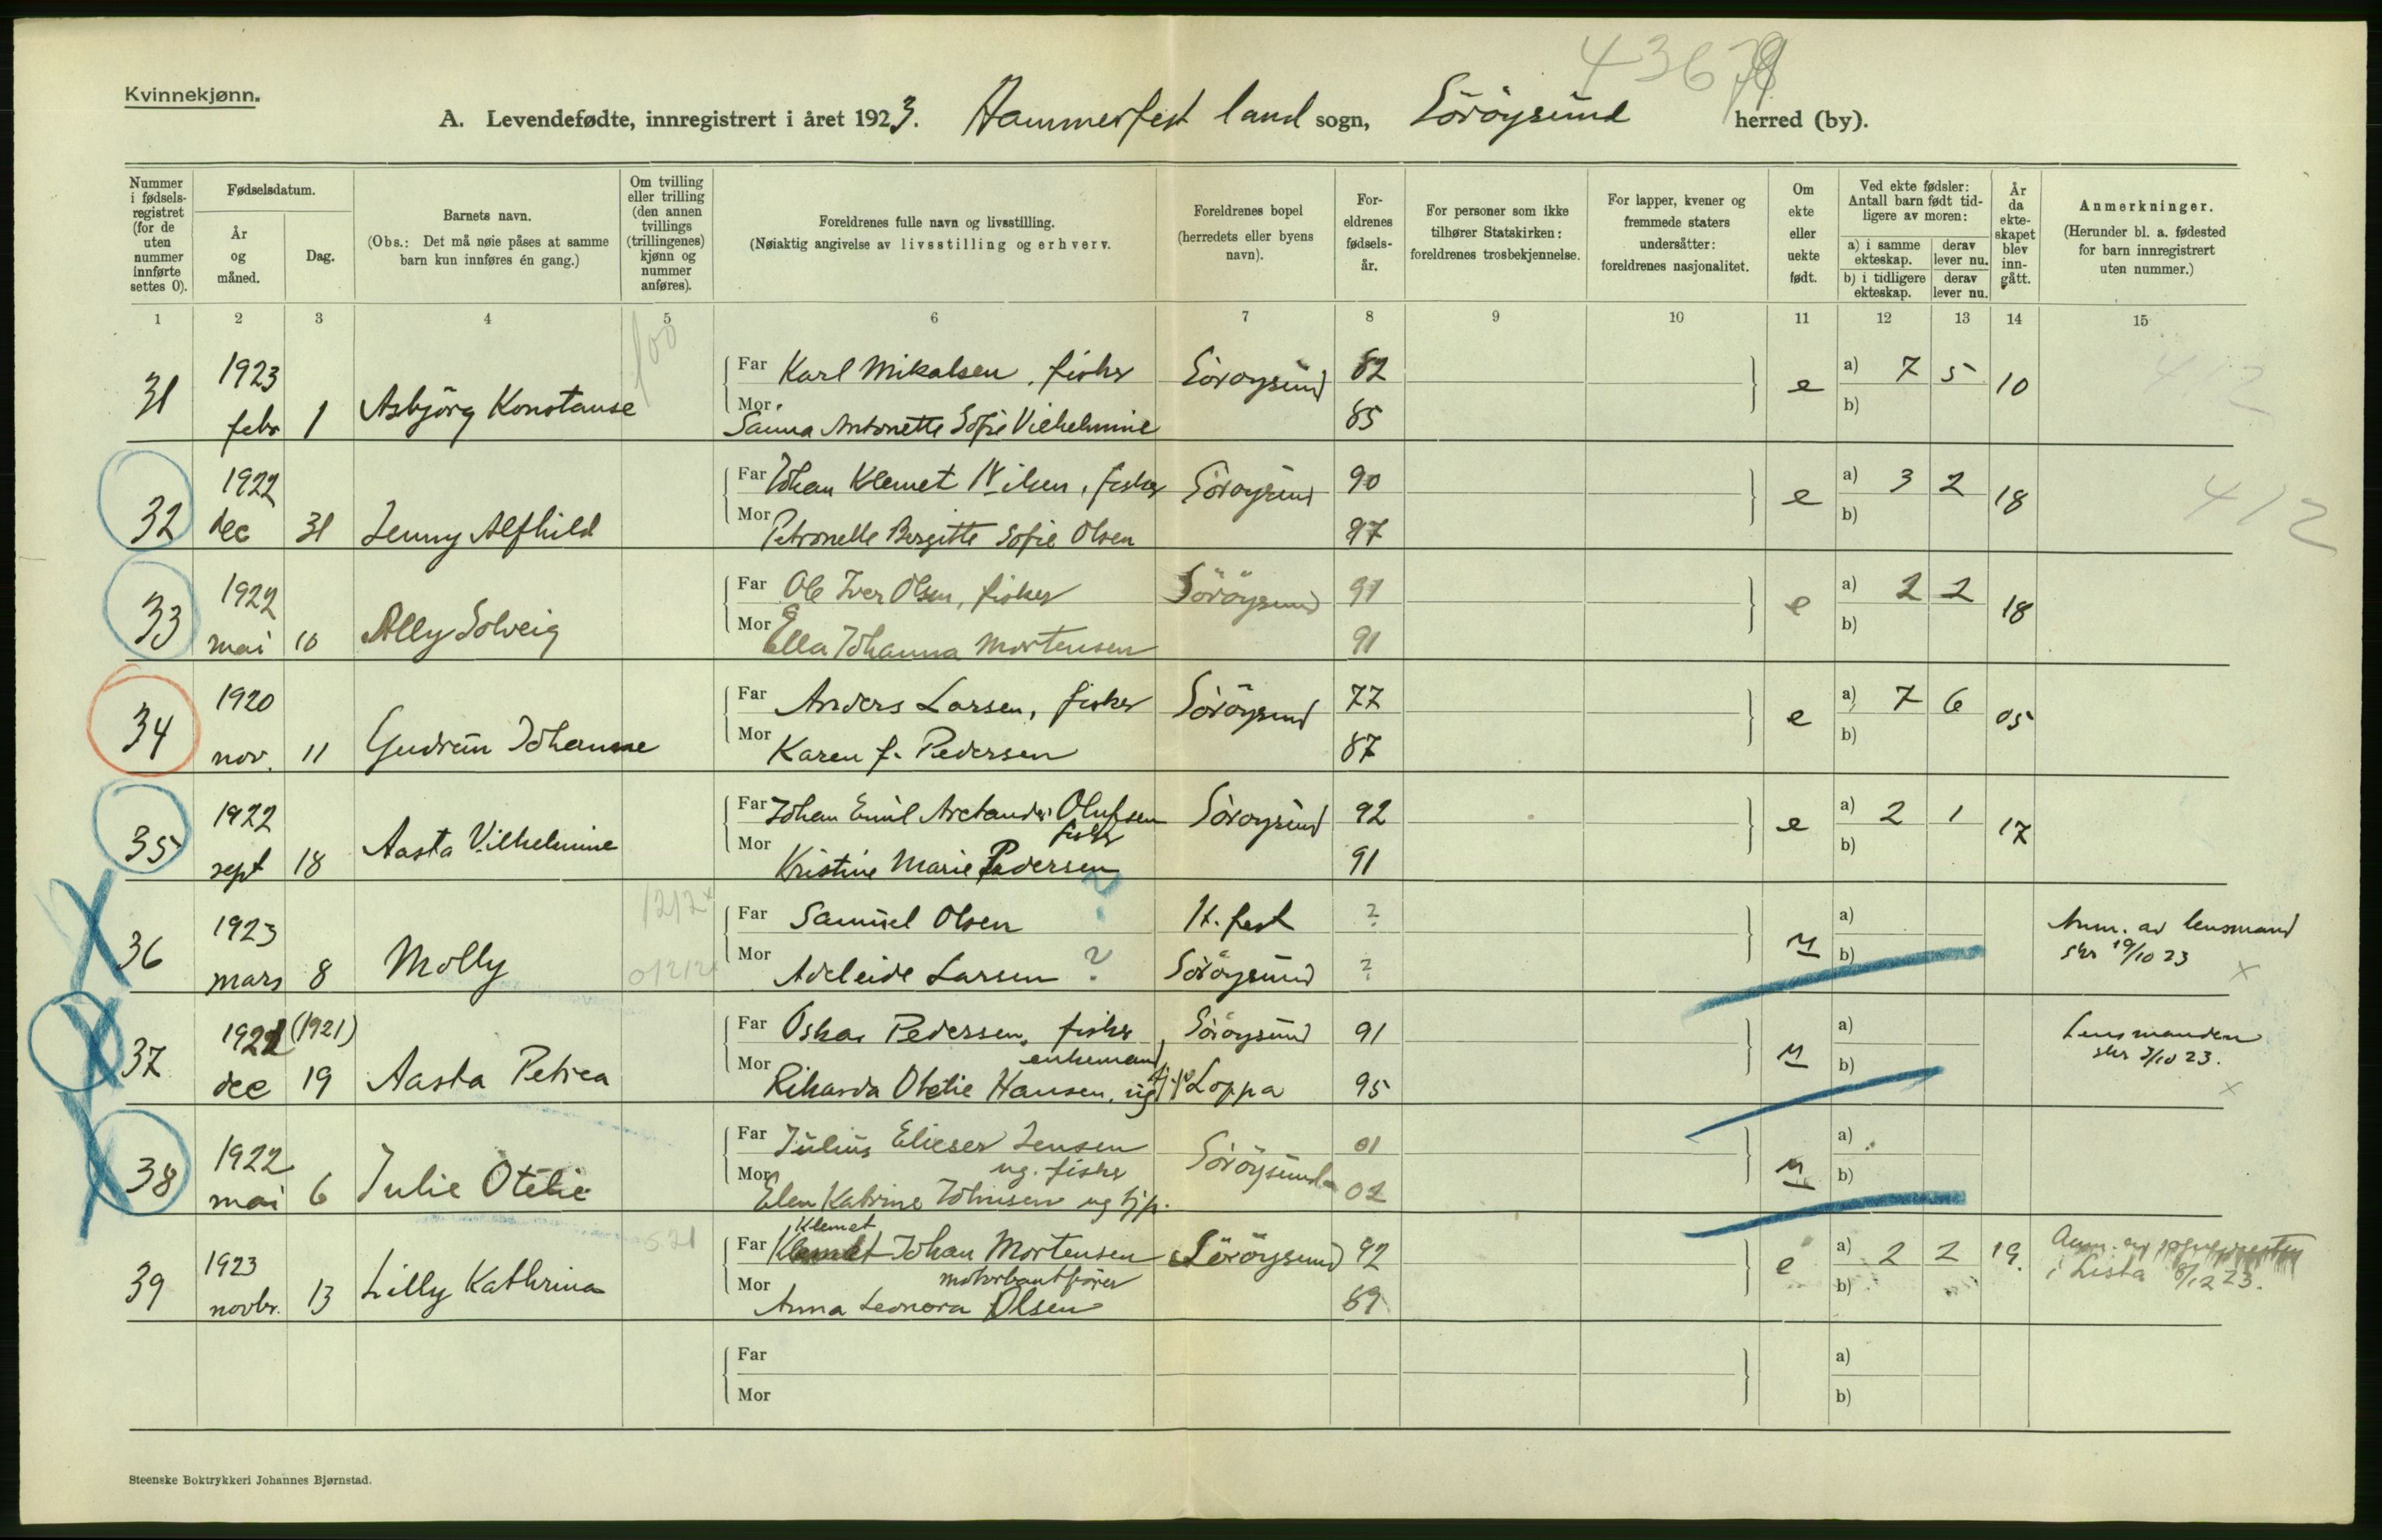 43679
Kvinnekjønn.
A. Levendefødte, innregistrert i året 1923. Hammerfest land sogn, Söröysund herred (by).
Nummer i fødsels-registret (for de uten nummer innførte settes 0).
Fødselsdatum.
År og måned.
Dag.
Barnets navn.
(Obs.: Det må nøie påses at samme barn kun innføres én gang.)
Om tvilling eller trilling (den annen tvillings (trillingenes) kjønn og nummer anføres).
Foreldrenes fulle navn og livsstilling.
(Nøiaktig angivelse av livsstilling og erhverv.
Foreldrenes bopel (herredets eller byens navn).
For-eldrenes fødsels-år.
For personer som ikke tilhører Statskirken: foreldrenes trosbekjennelse.
For lapper, kvener og fremmede staters undersåtter: foreldrenes nasjonalitet.
Om ekte eller uekte født.
Ved ekte fødsler: Antall barn født tid-ligere av moren:
a) i samme ekteskap. derav lever nu.
b) i tidligere ekteskap. derav lever nu.
År da ekte-skapet blev inn-gått.
Anmerkninger.
(Herunder bl. a. fødested for barn innregistrert uten nummer.)
1 2 3 4 5 6 7 8 9 10 11 12 13 14 15
100
31 1923 febr 1 Asbjörg Konstanse Far Karl Mikalsen, fisker Söröysund 82 e a) 7 5 10 412
Mor Sanna Antonette Sofie Vilhelmine 85 b)
32 1922 dec 31 Jenny Alfhild Far Johan Klemet Nilsen, fisker Söröysund 90 e a) 3 2 18 412
Mor Petronelle Bergitte Sofie Olsen 97 b)
33 1922 mai 10 Ally Solveig Far Ole Iver Olsen, fisker Söröysund 91 e a) 2 2 18
Mor Ella Johanna Mortensen 91 b)
34 1920 nov. 11 Gudrun Johanne Far Anders Larsen, fisker Söröysund 77 e a) 7 6 05
Mor Karen f. Pedersen 87 b)
35 1922 sept 18 Aasta Vilhelmine Far Johan Emil Arctander Olufsen fisker Söröysund 92 e a) 2 1 17
Mor Kristine Marie Pedersen 91 b)
36 1923 mars 8 Molly 1212 Far Samuel Olsen ? H. fest ? u a) Anm. av lensmand
Mor Adeleide Larsen ? Söröysund ? b) skr 19/10 23 x
37 1922 (1921) dec 19 Aasta Petrea Far Oskar Pedersen, fisker, enkemand Söröysund 91 u a) Lensmanden
Mor Rikarda Otelie Hansen, ug Loppa 95 b) skr 3/10 23. x
38 1922 mai 6 Julie Otelie Far Julius Elieser Jensen ug. fisker Söröysund 01 u a)
Mor Elen Katrine Johnsen ug tjp. 02 b)
39 1923 novbr. 13 Lilly Kathrina 521 Far Klemet Johan Mortensen motorbaatfører Söröysund 92 e a) 2 2 19.
Mor Anna Leonora Olsen 89 b) i Lista 8/12 23.
Far a)
Mor b)
Steenske Boktrykkeri Johannes Bjørnstad.